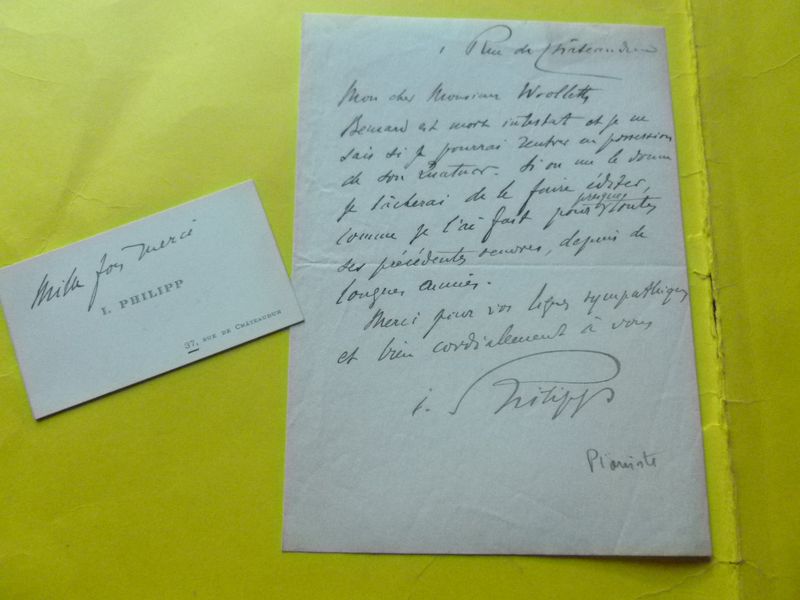 Mille fois merci
I. PHILIPP
37, RUE DE CHÂTEAUDUN
Rue de Châteaudun
Mon cher Monsieur Woollett
Bernard est mort intestat et je ne
sais si je pourrai rentrer en possession
de son Quatuor. Si on me le donne
je tâcherai de le faire éditer,
comme je l'ai fait pour presque toutes
ses précédentes oeuvres, depuis de
longues années.
Merci pour vos lignes sympathiques
et bien cordialement à vous
I. Philipp
Pianiste